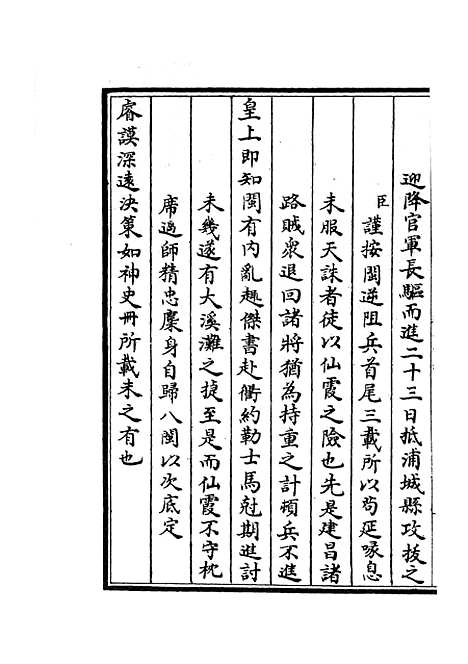 迎降官軍長驅而進二十三日抵浦城縣攻拔之
臣謹按閩逆阻兵首尾三載所以苟延喙息
未服天誅者徒以仙霞之險也先是建昌諸
路賊衆退回諸將猶為持重之計頓兵不進
皇上即知閩有內亂趣傑書赴衢約勒士馬尅期進討
未幾遂有大溪灘之捷至是而仙霞不守枕
席過師精忠麋身自歸八閩以次底定
睿謨深遠決策如神史冊所載未之有也